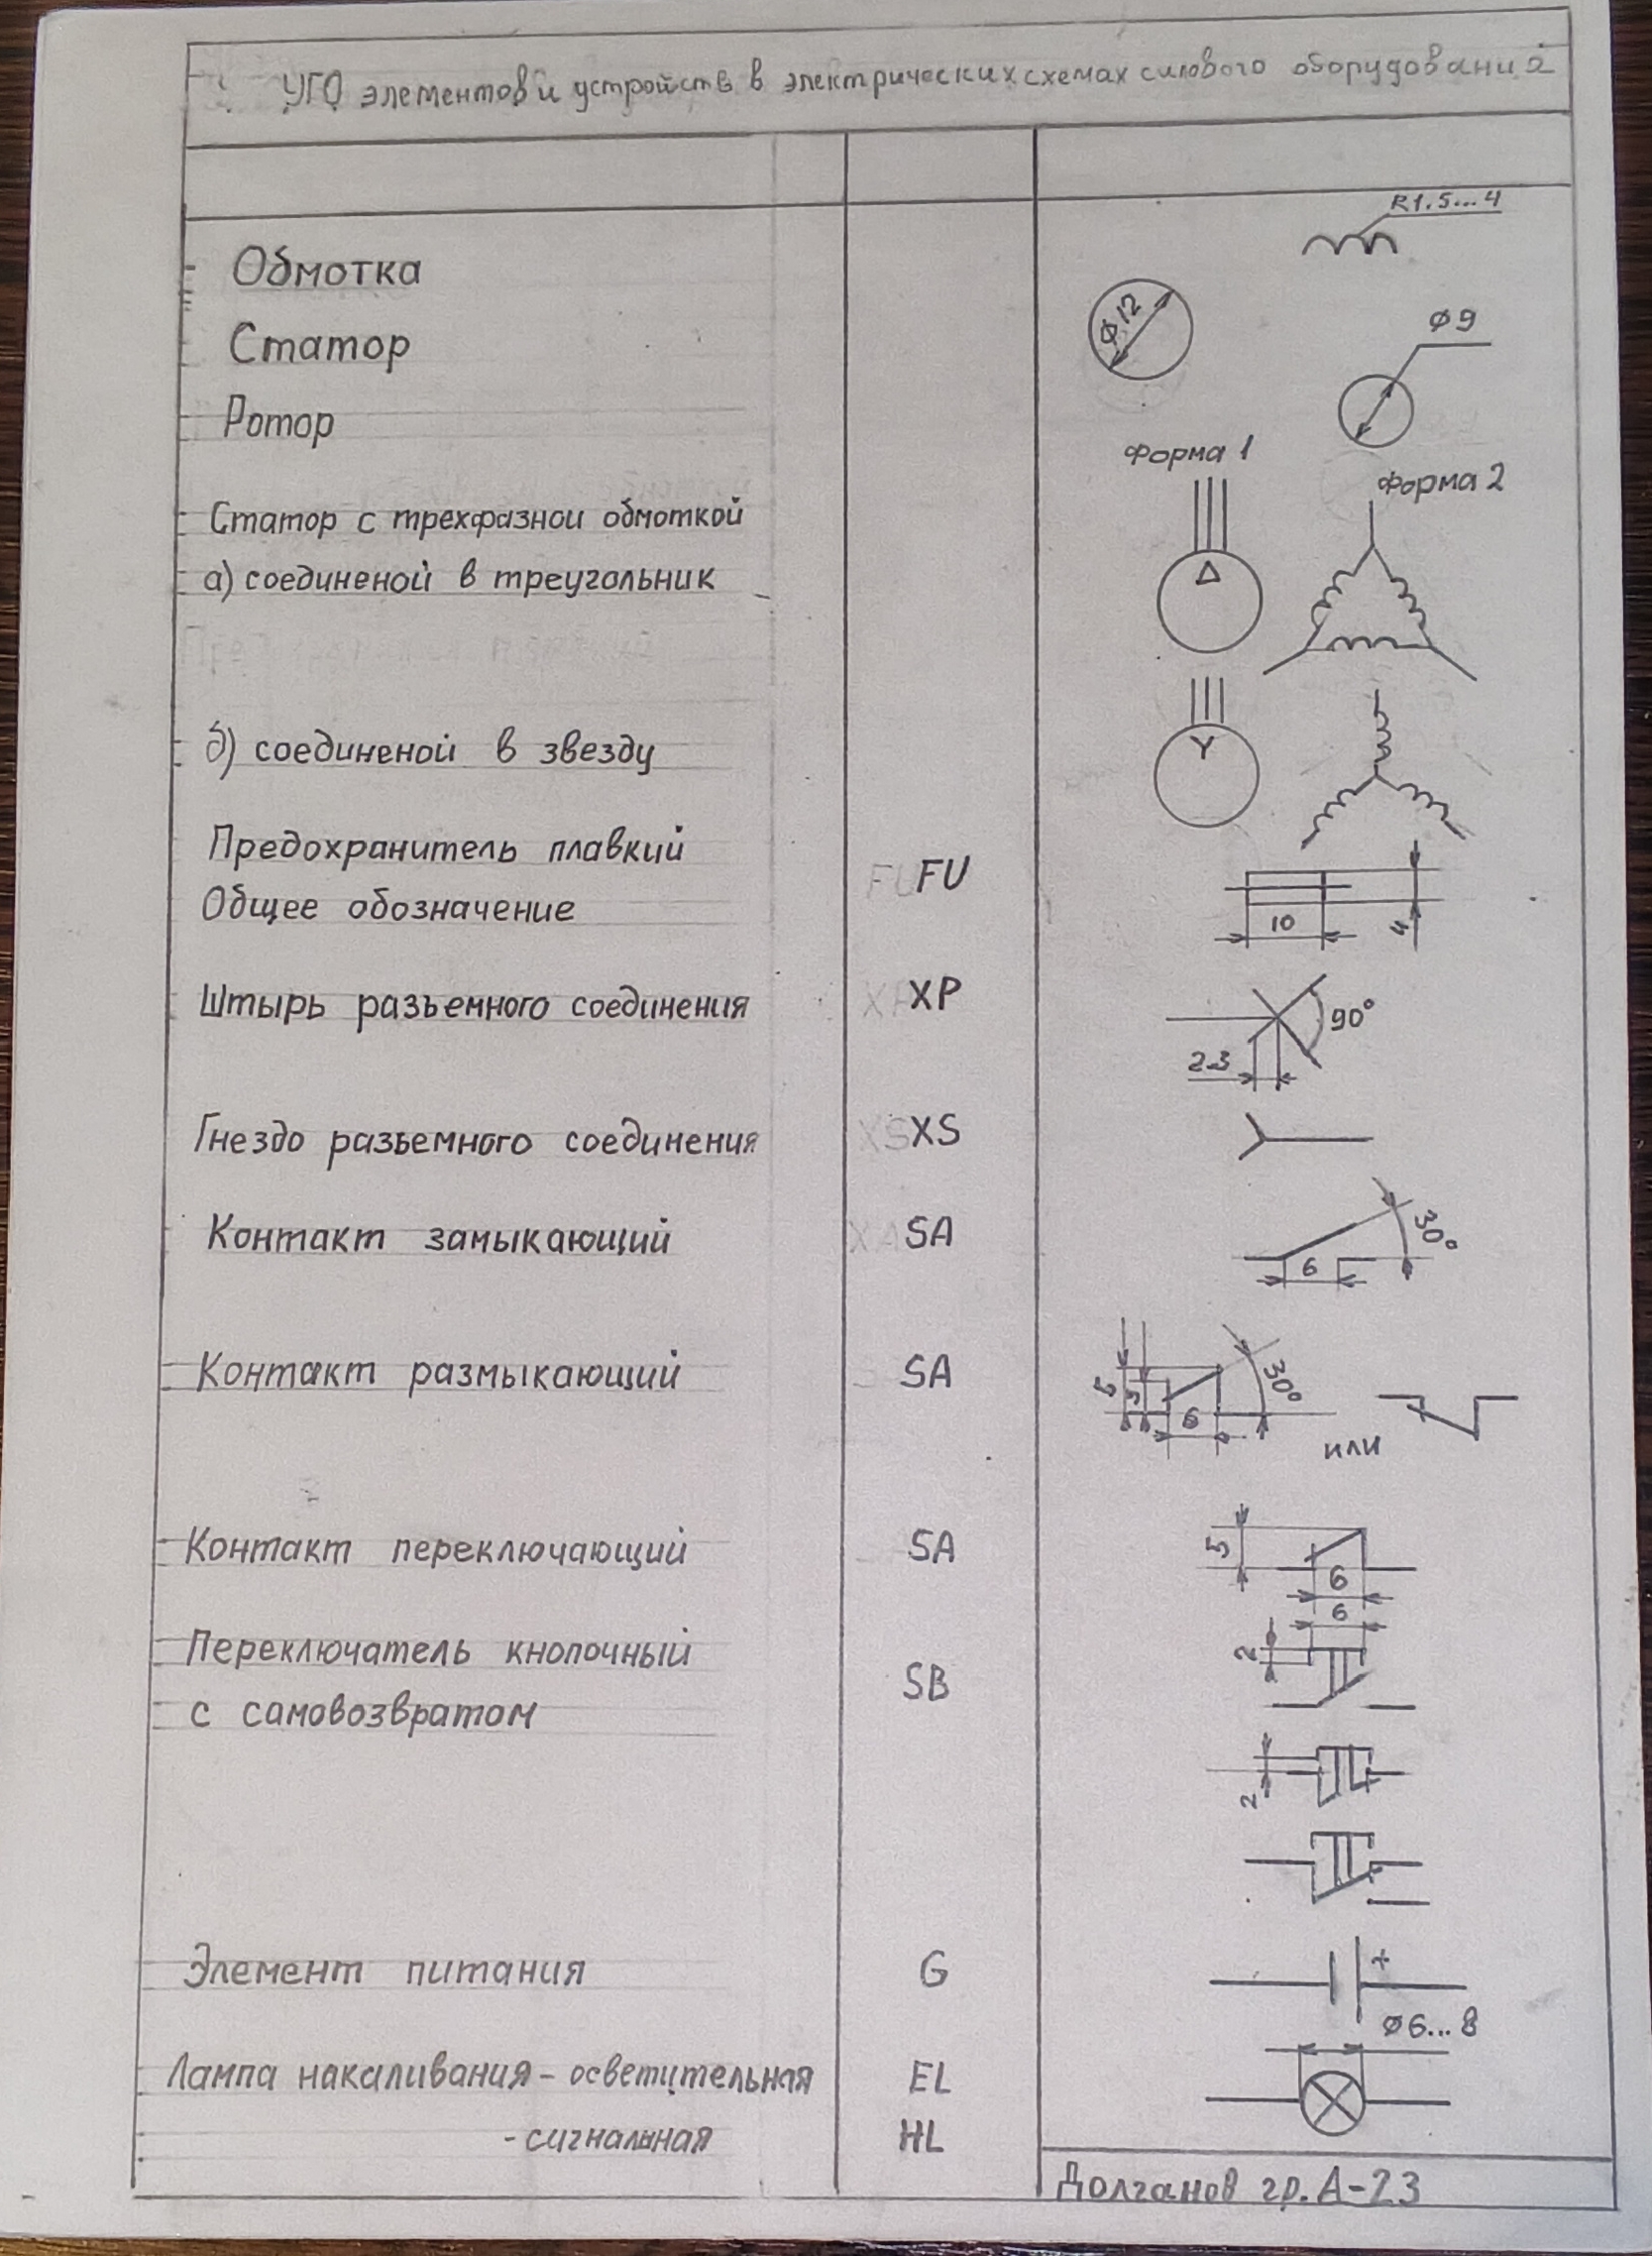 УГО элементов и устройств в электрических схемах силового оборудования
R1.5...4
Обмотка
Ø12
Статор
Ø9
Ротор
Форма 1
Форма 2
Статор с трехфазной обмоткой
а) соединеной в треугольник
Δ
б) соединеной в звезду
Y
Предохранитель плавкий
FU
Общее обозначение
10
4
Штырь разъемного соединения XP
90°
2..3
Гнездо разъемного соединения XS
Контакт замыкающий SA
30°
6
Контакт размыкающий SA
5
3
6
30°
или
Контакт переключающий SA
5
6
6
Переключатель кнопочный
2
SB
с самовозвратом
2
Элемент питания G
+
Ø6...8
Лампа накаливания - осветительная EL
- сигнальная HL
Долганов гр. А-23